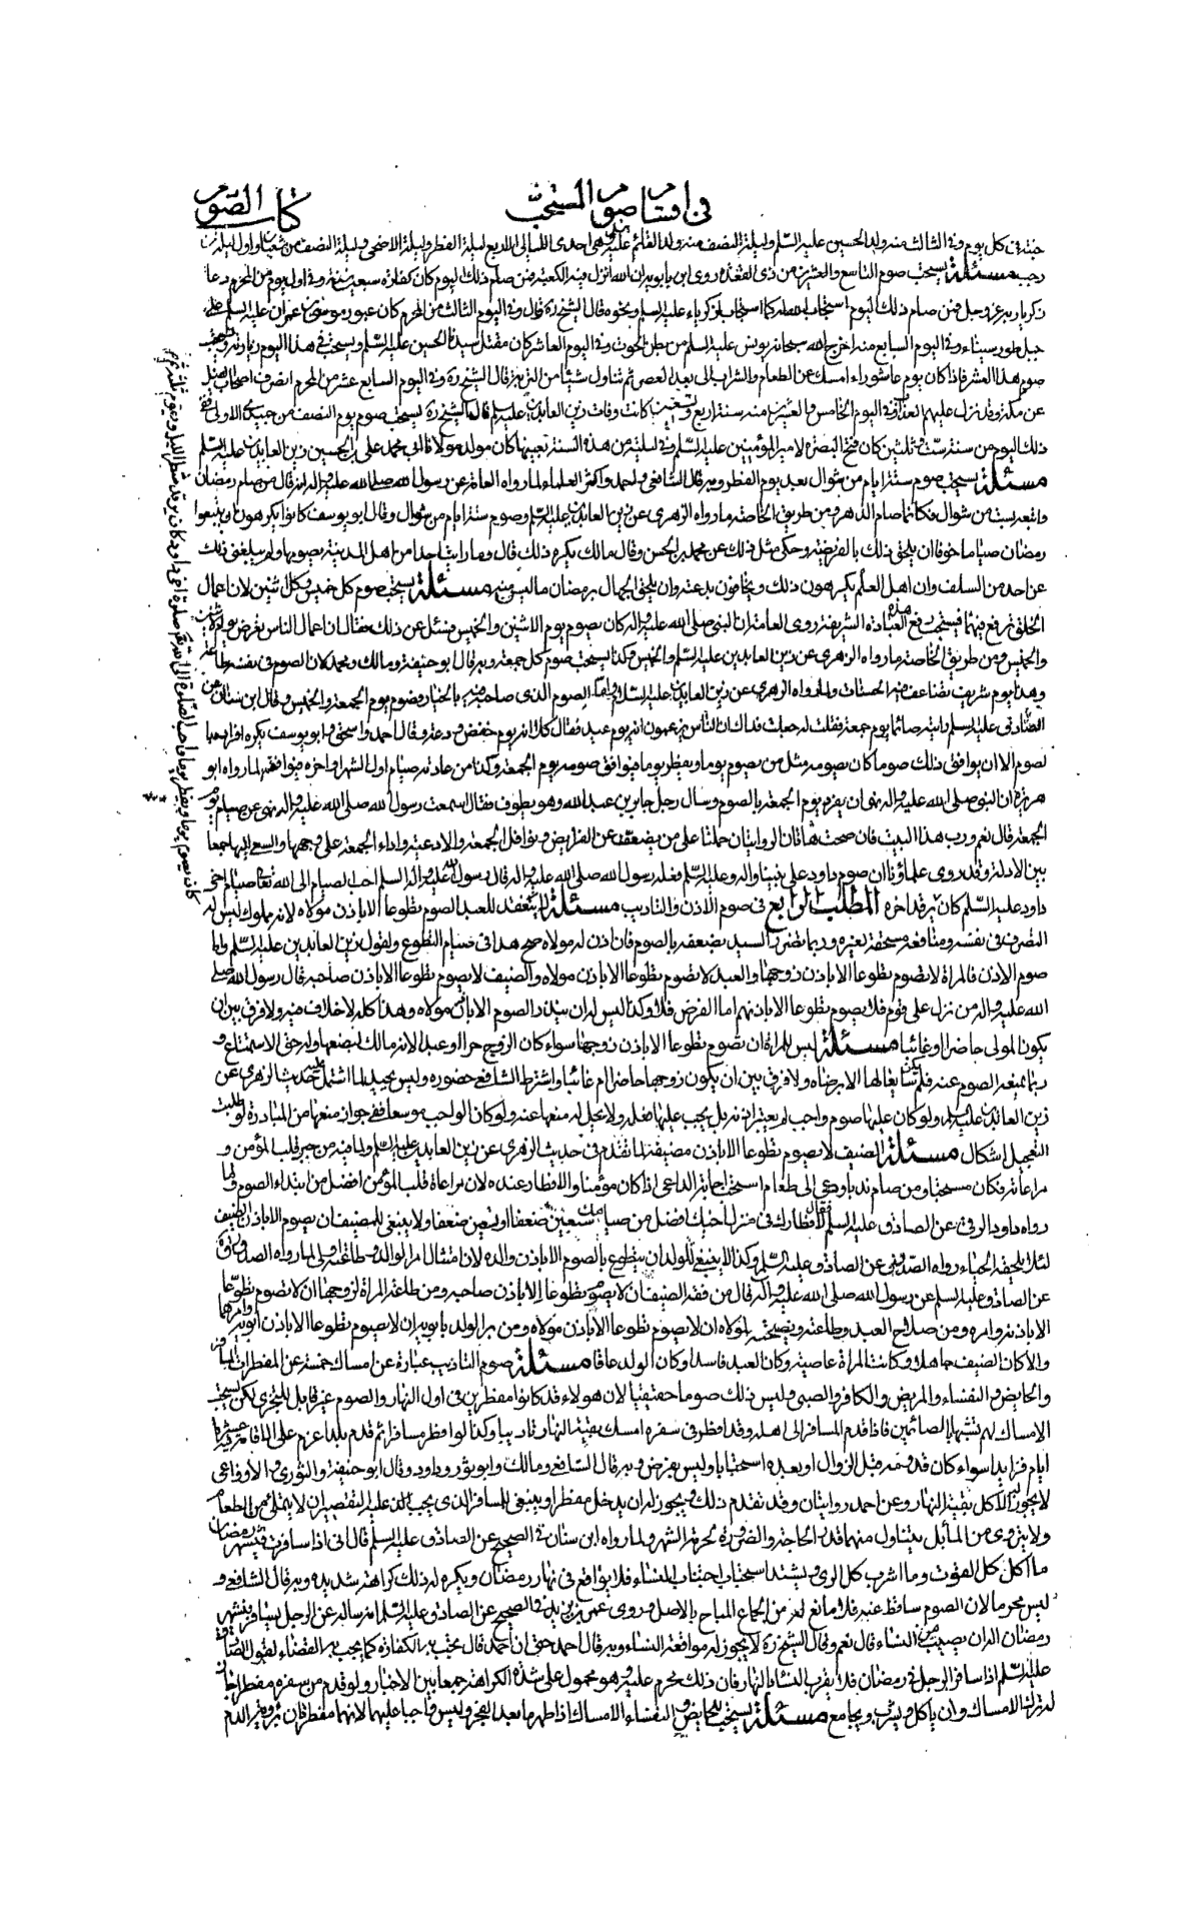 في اقسام صوم المستحبّ
كتاب الصّوم
خشية في كل يوم وفي الثالث منه ولد الحسين عليه السّلم وليلة النصف منه ولد القائم عليه السلم هي احدى الليالي الاربع ليلة الفطر وليلة الاضحى وليلة النصف من شعبان واول ليلة من
رجب مسئلة يستحب صوم التاسع والعشرين من ذي القعدة روى ابن بابويه ان الله انزل فيه الكعبة فمن صام ذلك اليوم كان كفارة سبعين سنة وفي اول يوم من المحرم دعا
زكريا ربه عز وجل فمن صام ذلك اليوم استجاب الله له كما استجاب لزكرياء عليه السلم ونحوه قال الشيخ ره قال وفي اليوم الثالث من المحرم كان عبور موسى بن عمران عليه السلم على
جبل طور سيناء وفي اليوم السابع منه اخرج الله سبحانه يونس عليه السلم من بطن الحوت وفي اليوم العاشر كان مقتل سيدنا الحسين عليه السّلم ويستحب في هذا اليوم زيارته ويستحب
صوم هذا العشر فاذا كان يوم عاشوراء امسك عن الطعام والشراب الى بعد العصر ثم تناول شيئا من التربة قال الشيخ ره وفي اليوم السابع عشر من المحرم انصرف اصحاب الفيل
عن مكة وقد نزل عليهم العذاب وفي اليوم الخامس والعشرين منه سنة اربع وتسعين كانت وفات زين العابدين عليه السلم قال الشيخ ره يستحب صوم يوم النصف من جميدى الاولى ففي
ذلك اليوم من سنة ستّ وثلثين كان فتح البصرة لامير المؤمنين عليه السّلم وفي ليلته من هذه السنة بعينها كان مولد مولانا ابي محمد علي بن الحسين زين العابدين عليه السّلم
مسئلة يستحب صوم ستة ايام من شوال بعد يوم الفطر وبه قال الشافعي واحمد واكثر العلماء لما رواه العامة عن رسول الله صلى الله عليه واله انه قال من صام رمضان
واتبعه بست من شوال فكانما صام الدهر ومن طريق الخاصة ما رواه الزهري عن زين العابدين عليه السّلم وصوم ستة ايام من شوال وقال ابو يوسف كانوا يكرهون ان يتبعوا
رمضان صياما خوفا ان يلحق ذلك بالفريضة وحكى مثل ذلك عن محمد بن الحسن وقال مالك يكره ذلك قال وما رايت احدا من اهل المدينة يصومها ولم يبلغني ذلك
عن احد من السلف وان اهل العلم يكرهون ذلك ويخافون بدعته وان يلحق الجهال برمضان ما ليس منه مسئلة يستحب صوم كل خميس وكل اثنين لان اعمال
الخلق ترفع فيهما فيستحب رفع هذه العبادة الشريفة روى العامة ان النبي صلى الله عليه واله كان يصوم يوم الاثنين والخميس فسئل عن ذلك فقال ان اعمال الناس تعرض يوم الاثنين
والخميس ومن طريق الخاصة ما رواه الزهري عن زين العابدين عليه السلم والخميس وكذا يستحب صوم كل جمعة وبه قال ابو حنيفة ومالك ومحمد لان الصوم في نفسه طاعة
وهذا يوم شريف تضاعف فيه الحسنات ولما رواه الزهري عن زين العابدين عليه السلم واما الصوم الذي صاحبه فيه بالخيار فصوم يوم الجمعة والخميس وقال ابن سنان عن
الصّادق عليه السلم رايته صائما يوم جمعة فقلت له جعلت فداك ان الناس يزعمون انه يوم عيد فقال كلا انه يوم خفض ودعة وقال احمد واسحق وابو يوسف يكره افراده
بصوم الا ان يوافق ذلك صوما كان يصومه مثل من يصوم يوما ويفطر يوما فيوافق صومه يوم الجمعة وكذا من عادته صيام اول الشهر او اخره فيوافقه لما رواه ابو
هريرة ان النبي صلى الله عليه واله نهى ان يفرد يوم الجمعة بالصوم وسال رجل جابر بن عبد الله وهو يطوف فقال اسمعت رسول الله صلى الله عليه واله نهى عن صيام يوم
الجمعة قال نعم ورب هذا البيت فان صحت هاتان الروايتان حملتا على من يضعف عن الفرايض ونوافل الجمعة والادعية واداء الجمعة على وجهها والسعي اليها جمعا
بين الادلة وقد روى علماؤنا ان صوم داود على نبينا واله وعليه السّلم فعله رسول الله صلى الله عليه واله قال رسول الله عليه واله السلم احب الصيام الى الله تعالى صيام اخي
داود عليه السّلم كان اخره المطلب الرابع في صوم الاذن والتاديب مسئلة لا ينعقد للعبد الصوم تطوعا الا باذن مولاه لانه مملوك ليس له
التصرف في نفسه ومنافعه مستحقة لغيره وربما تضرر السيد بضعفه بالصوم فان اذن له مولاه صح هذا في صيام التطوع ولقول زين العابدين عليه السّلم واما
صوم الاذن فالمراة لا تصوم تطوعا الا باذن زوجها والعبد لا يصوم تطوعا الا باذن مولاه والضيف لا يصوم تطوعا الا باذن صاحبه قال رسول الله صلى
الله عليه واله من نزل على قوم فلا يصوم تطوعا الا باذنهم اما الفرض فلا وكذا ليس له ان ينذر الصوم الا باذن مولاه وهذا كله لا خلاف فيه ولا فرق بين ان
يكون المولى حاضرا او غائبا مسئلة ليس للمراة ان تصوم تطوعا الا باذن زوجها سواء كان الزوج حرا او عبدا لانه مالك لبضعها وله حق الاستمتاع و
ربما يمنعه الصوم عنه فلم يكن سائغا لها الا برضاه ولا فرق بين ان يكون زوجها حاضرا ام غائبا واشترط الشافعي حضوره وليس بجيد لما اشتمل عليه حديث الزهري عن
زين العابدين عليه السلم ولو كان عليها صوم واجب لم يعتبر اذنه بل يجب عليها فعله ولا يحل له منعها عنه ولو كان الواجب موسعا ففي جواز منعها من المبادرة لو طلبت
التعجيل اشكال مسئلة الضيف لا يصوم تطوعا الا باذن مضيفه لما تقدم في حديث الزهري عن زين العابدين عليه السّلم ولما فيه من جبر قلب المؤمن و
مراعاته فكان مستحبا ومن صام ندبا ودعي الى طعام استحب اجابة الداعي اذا كان مؤمنا والافطار عنده لان مراعاة قلب المؤمن افضل من ابتداء الصوم ولما
رواه داود الرقي عن الصادق عليه السلم قال لافطارك في منزل اخيك افضل من صيامك سبعين ضعفا او تسعين ضعفا ولا ينبغي للمضيف ان يصوم الا باذن الضيف
لئلا يلحقه الحياء رواه الصدوق عن الصادق عليه السّلم وكذا لا ينبغي للولد ان يتطوع بالصوم الا باذن والده لان امتثال امر الوالد وطاعته اولى لما رواه الصدوق ره
عن الصادق عليه السلم عن رسول الله صلى الله عليه واله قال من فقه الضيف ان لا يصوم تطوعا الا باذن صاحبه ومن طاعة المراة لزوجها ان لا تصوم تطوعّا
الا باذنه وامره ومن صلاح العبد وطاعته ونصيحته لمولاه ان لا يصوم تطوعا الا باذن مولاه ومن بر الولد بابويه ان لا يصوم تطوعا الا باذن ابويه وامرهما
والا كان الضيف جاهلا وكانت المراة عاصية وكان العبد فاسدا وكان الولد عاقا مسئلة صوم التاديب عبارة عن امساك خمسة عن المفطرات المسافر
والحايض والنفساء والمريض والكافر والصبي وليس ذلك صوما حقيقيا لان هولاء قد كانوا مفطرين في اول النهار والصوم غير قابل للتجزي لكن يستحب
الامساك لهم تشبها بالصائمين فاذا قدم المسافر الى اهله وقد افطر في سفره امسك بقية النهار تاديبا وكذا لو افطر مسافرا ثم قدم بلدا عزم على الاقامة فيه عشرة
ايام فزايدا سواء كان قدومه قبل الزوال او بعده استحبابا وليس بفرض وبه قال الشافعي ومالك وابو ثور وداود وقال ابو حنيفة والثوري والاوزاعي
لا يجوز له الاكل بقية النهار وعن احمد روايتان وقد تقدم ذلك ويجوز له ان يدخل مفطرا وينبغي للمسافر الذي يجب عليه التقصير ان لا يتملى من الطعام
ولا يتروى من الماء بل يتناول منهما قدر الحاجة والضرورة لحرمة الشهر ولما رواه ابن سنان في الصحيح عن الصادق عليه السلم قال اني اذا سافرت في شهر رمضان
ما اكل كل القوت وما اشرب كل الري ويشتد استحباب اجتناب النساء فلا يواقع في نهار رمضان ويكره له ذلك كراهة شديدة وبه قال الشافعي و
ليس محرما لان الصوم ساقط عنه فلا مانع له من الجماع المباح بالاصل وروى عمر بن يزيد في الصحيح عن الصادق عليه السّلم انه ساله عن الرجل يسافر في شهر
رمضان اله ان يصيب من النساء قال نعم وقال الشيخ ره لا يجوز له مواقعة النساء وبه قال احمد حتى ان احمد قال يجب به الكفارة كما يجب به القضاء لقول الصادق
عليه السّلم اذا سافر الرجل في رمضان فلا يقرب النساء بالنهار فان ذلك محرم عليه وهو محمول على شدة الكراهة جمعا بين الاخبار ولو قدم من سفره مفطرا جاز
له ترك الامساك وان ياكل ويشرب ويجامع مسئلة يستحب للحايض والنفساء الامساك اذا طهرتا بعد الفجر وليس واجبا عليهما لانهما مفطرتان برؤية الدم
كان يصوم يوما ويفطر يوما واحب الصلوة الى الله تعالى صلوة اخي داود كان يرقد شطر الليل ويقوم ثلثه ثم